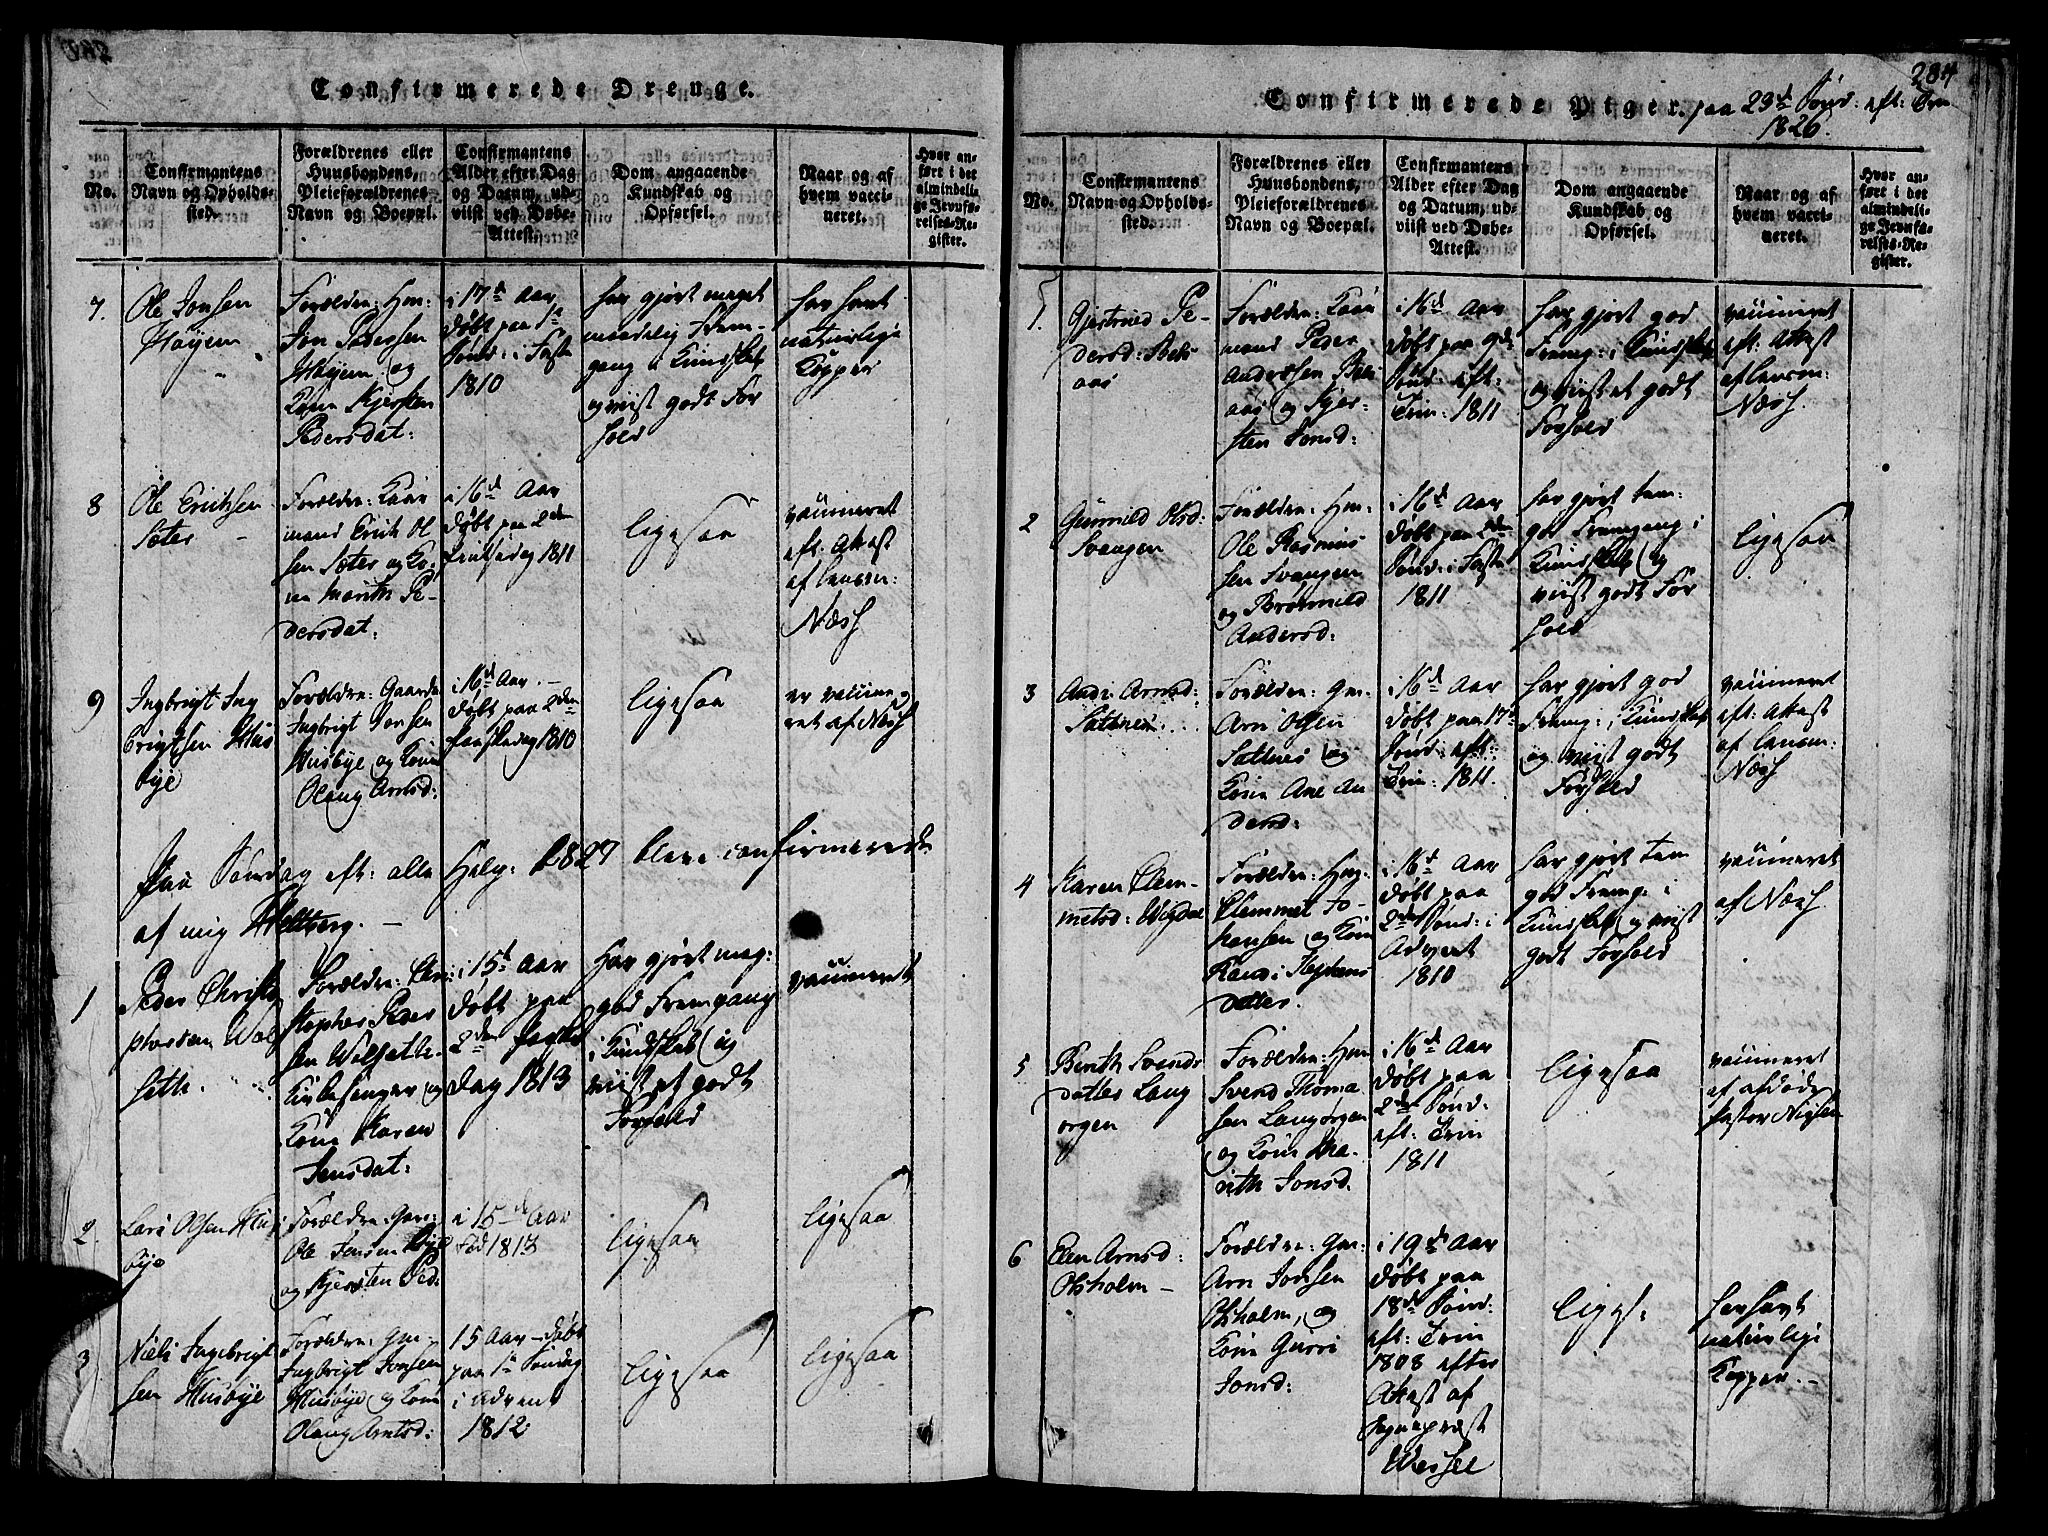 Confirmerede Drenge.
No.
Confirmantens
Navn og Opholds-
sted.
Forældrenes eller
Huusbondens,
Pleieforældrenes
Navn og Boepæl.
Confirmantens
Alder efter Dag
og Datum, ud-
viist ved Døbe-
Attest.
Dom angaaende
Kundskab og
Opførsel.
Naar og af
hvem vacci-
neret.
Hvor an-
ført i det
almindeli-
ge Jevnfø-
relses-Re-
gister.
7.
Ole Jonsen
Høyem
Forældre: Hm:
Jon Pedersen
Høyem og
Kone Kjersten
Pedersdat:
i 17d Aar
døbt paa 1ste
Sønd: i Faste
1810
har gjort meget
maadelig Frem-
gang i Kundskab
og viist godt For
hold
har havt
naturlige
Kopper
8
Ole Erichsen
Sæter
Forældre: Gaar
mand Erich Ol
sen Sæter og Ko-
ne Marith Pe-
dersdat:
i 16d Aar
døbt paa 2den
Juulsdag 1811
ligesaa
vaccineret
eft: Attest
af
Næss
9
Ingbrigt Ing
brigtsen Hus
bye
Forældre: Gaardm
Ingbrigt Jonsen
Husbye og Kone
Olaug Arntsd:
i 16d Aar.
døbt paa 2den
Paaskedag 1810
ligesaa
er vaccine
ret af Næss
Paa Søndag eft: alle Helg: 1827 bleve confirmerede
af mig Heltberg.
1
Peder Christo
phersen Wol
seth.
Forældre: Chri
stopher Peder
sen Wolseth
Kirkesanger og
Kone Karen
Jensdat:
i 15d Aar
døbt paa
2den
dag 1813
Har gjort meg:
god Fremgang
i Kundskab og
viist et godt
Forhold
vaccineret
2
Lars Olsen Hus
bye
Forældre: Gm:
Ole Jensen Bye
og Kjersten Ped:
i 15de Aar
fød 1813
ligesaa
ligesaa
3
Niels Ingebrigt
sen Husbye
Forældre: Gm:
Ingbrigt Jonsen
Husbye og Kone
Olaug Arntsd:
15 Aar – døbt
paa 1ste Søndag
i Advent
1812
ligesaa
ligesaa
284
Confirmerede Piger. paa 23d Sønd: eft: Trin
1826.
No.
Confirmantens
Navn og Opholds-
sted.
Forældrenes eller
Huusbondens,
Pleieforældrenes
Navn og Boepæl.
Confirmantens
Alder efter Dag
og Datum, ud-
viist ved Døbe-
Attest.
Dom angaaende
Kundskab og
Opførsel.
Naar og af
hvem vacci-
neret.
Hvor an-
ført i det
almindeli-
ge Jevnfø-
relses-Re-
gister.
1.
Gjertrud Pe-
dersd:
aas
Forældre: Gaar
mand Peder
Andersen
aas og Kjer-
sten Jonsd:
i 16d Aar
døbt paa 9de
Sønd: eft:
Trin: 1811
har gjort god
Fremg: i Kundskab
og viist et godt
Forhold
vaccineret
eft: Attest
af
Næss.
2
Gunnild Olsd:
Svangen
Forældre: Hm:
Ole Rasmus
sen Svangen
og
Andersd:
i 16d Aar
døbt paa 2den
Sønd: i Faste
1811
har gjort tem:
god Fremgang i
Kundskab og
viist godt For
hold
ligesaa
3
Andi Arnsd:
Sattnes
Forældre: Gm:
Arn Olsen
Sattnes og
Kone Ane An
dersd:
i 16d Aar
døbt paa 17de
Sønd: eft:
Trin: 1811.
har gjort god
Fremg: i Kundskab
og viist godt
Forhold
vaccineret
eft: Attest
af
Næss
4
Karen Clem-
metsd: Wigdal
Forældre:
Clemmet Jo-
hansen og Kone
Randi Stephens
datter.
i 16d Aar
døbt paa
2den Sønd: i
Advent
1810
har gjort tem
god Fremg: i
Kundskab og viist
godt Forhold
vaccineret
af Næss.
5
Berith Svends
datter Lang
orgen
Forældre: Hm
Svend Thoma
sen Langorgen
og Kone Ma-
rith Jonsd.
i 16d Aar
døbt paa
2den Sønd.
eft: Trin
1811
ligesaa
vaccineret
af afdøde
Pastor
6
Elen Arnsd:
Forældre: Gm:
Arn Jonsen
og
Kone Gurri
Jonsd:
i 19d Aar
døbt paa
18de Sønd:
eft: Trin
1808 efter
Attest af
Sognepræst
Wessel
liges:
har havt
naturlige
Kopper.